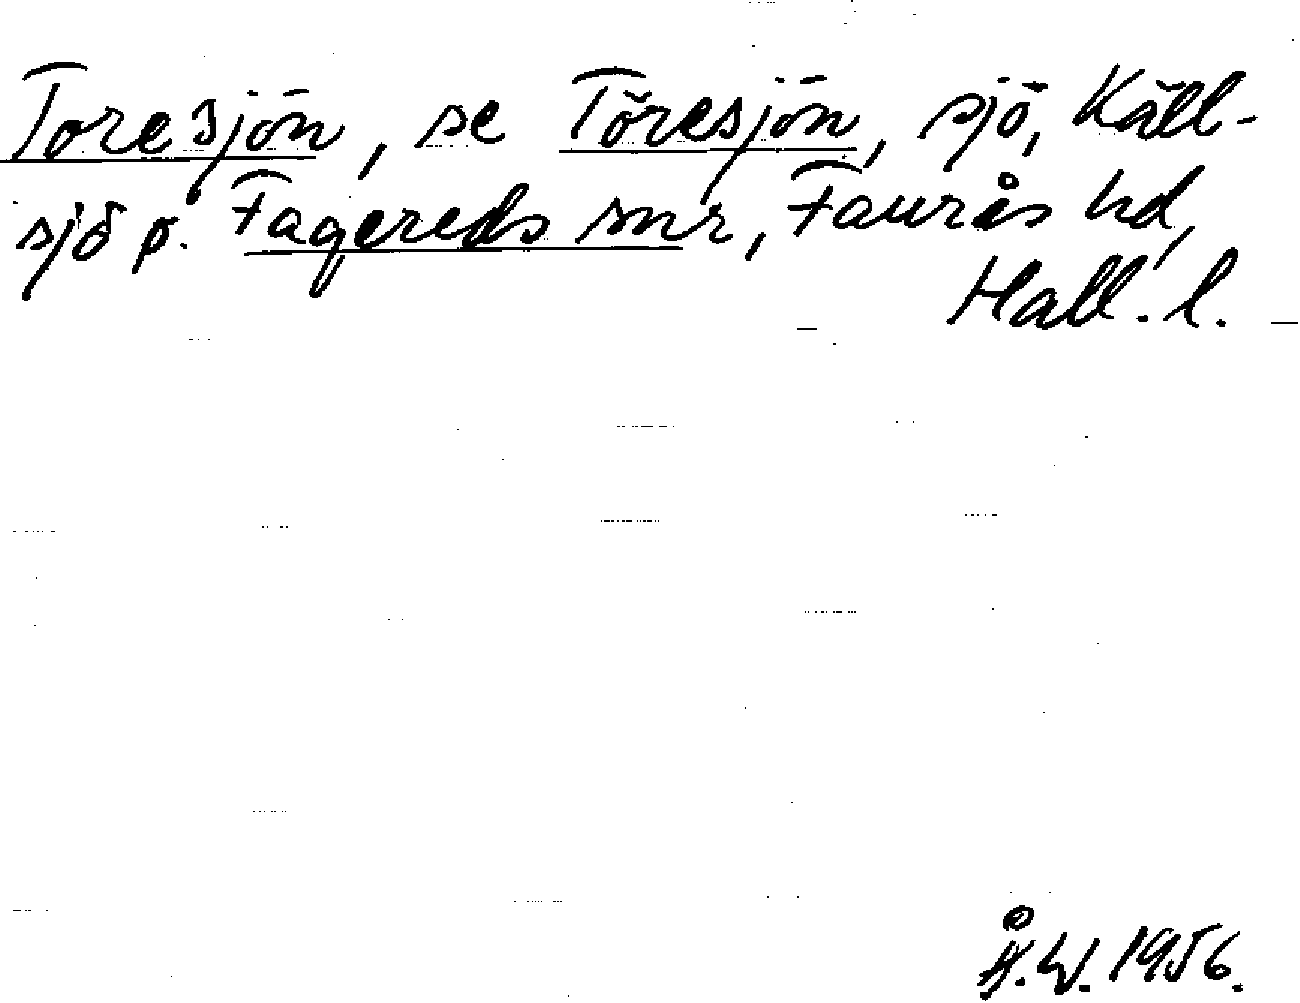 Toresjön, se Töresjön, sjö, Käll-
sjö p. Fagereds snr, Faurås hd,
Hall. l.
Å.W. 1956.